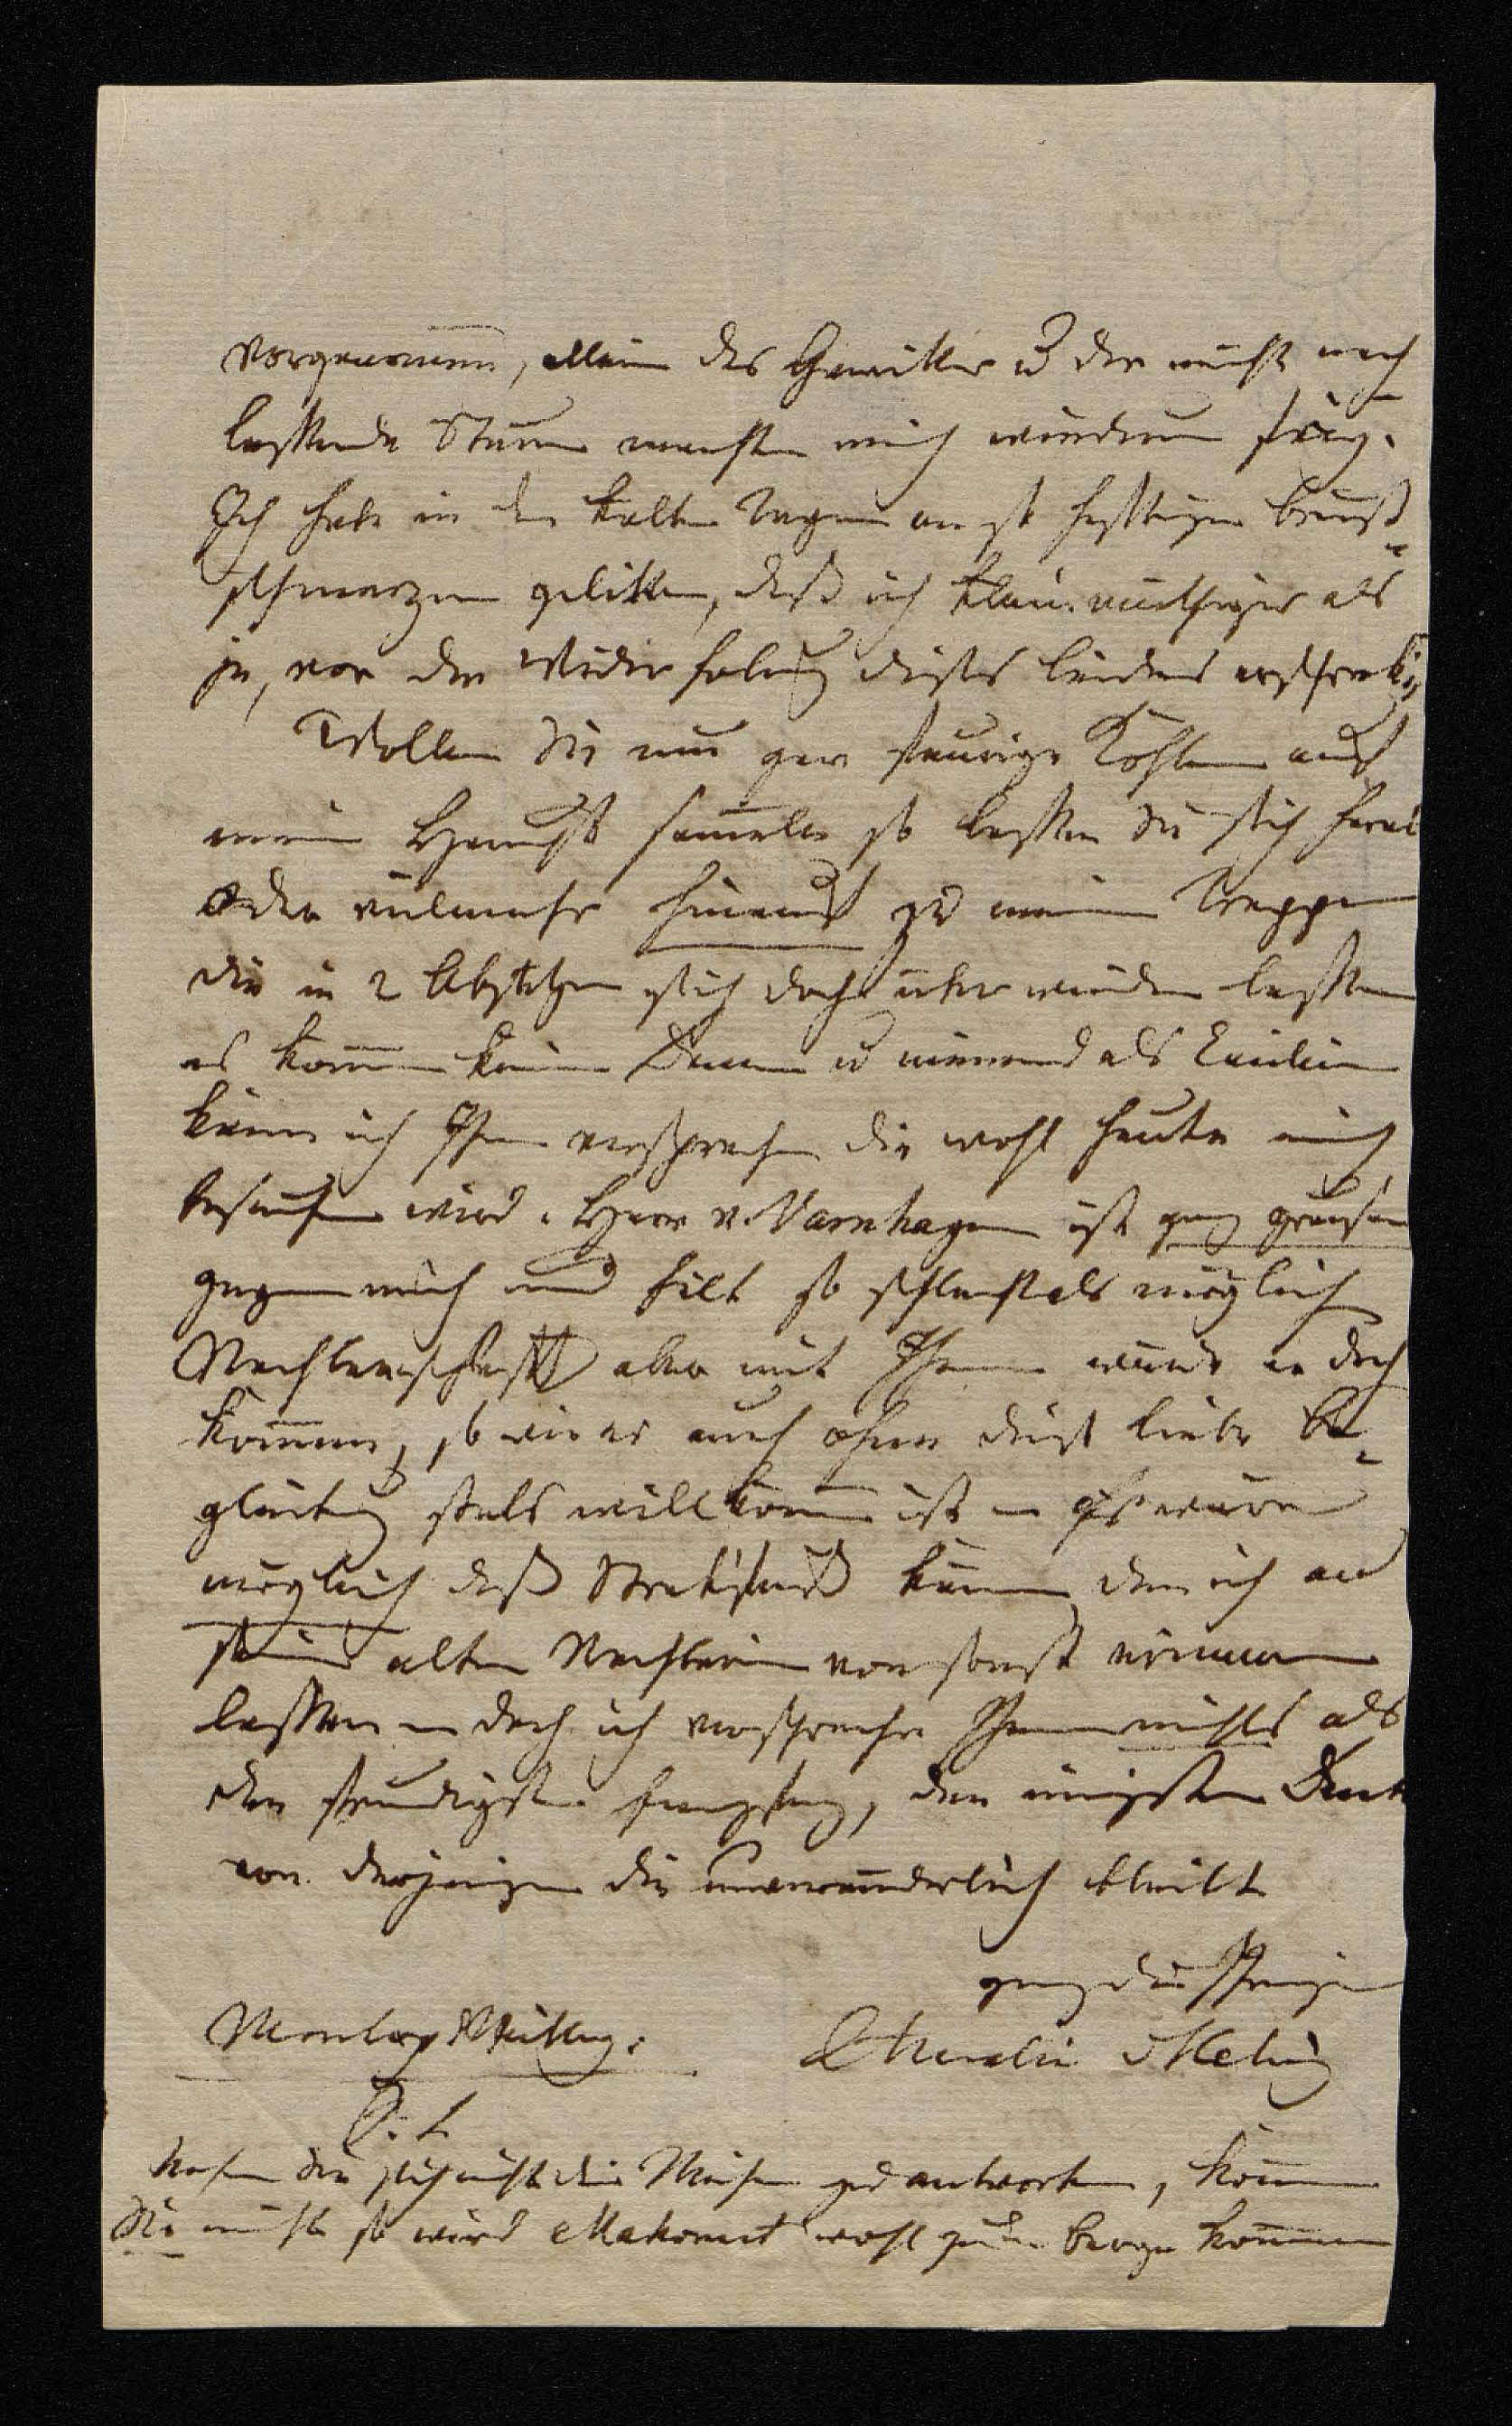 vorgenomm̄en, allein das Gewitter u der nicht nach
lassende Sturm machten mich wiederum feig.
Ich habe in den kalten Tagen an so heftigen Brust-
schmerzen gelitten, daß ich kleinmüthiger als
je, vor der Widerholung dieses Leidens erschrecke,
Wollen Sie nun gar feurige Kohlen auf
mein Haupt sam̄eln so lassen Sie sich herab
oder vielmehr hinauf zu meinen Treppen
die in 2 Absätzen sich doch überwinden lassen
es kom̄en keine Damen u niemand als Emilien
kann ich Ihnen versprechen die wohl heute mich
besuchen wird. Herr v. Varnhagen ist ganz grausam
gegen mich und hält so schlecht als möglich
Nachbarschaft aber mit Ihnen würde er doch
kom̄en, so wie er auch ohne diese liebe Be-
gleitung stets willkom̄en ist – Es wäre
möglich daß Streckfuß käme, den ich an
seine alte Nachbarin von sonst erinnern
lassen – doch ich verspreche Ihnen nichts als
den freudigsten Empfang, den innigsten Dank
von derjenigen die unveränderlich bleibt
ganz die Ihrige
Montag Mittag. Amalie
P. S.
Sie sich nicht die Mühe zu antworten, kom̄en
Sie nicht so wird Mahomet wohl zum Berge kom̄en